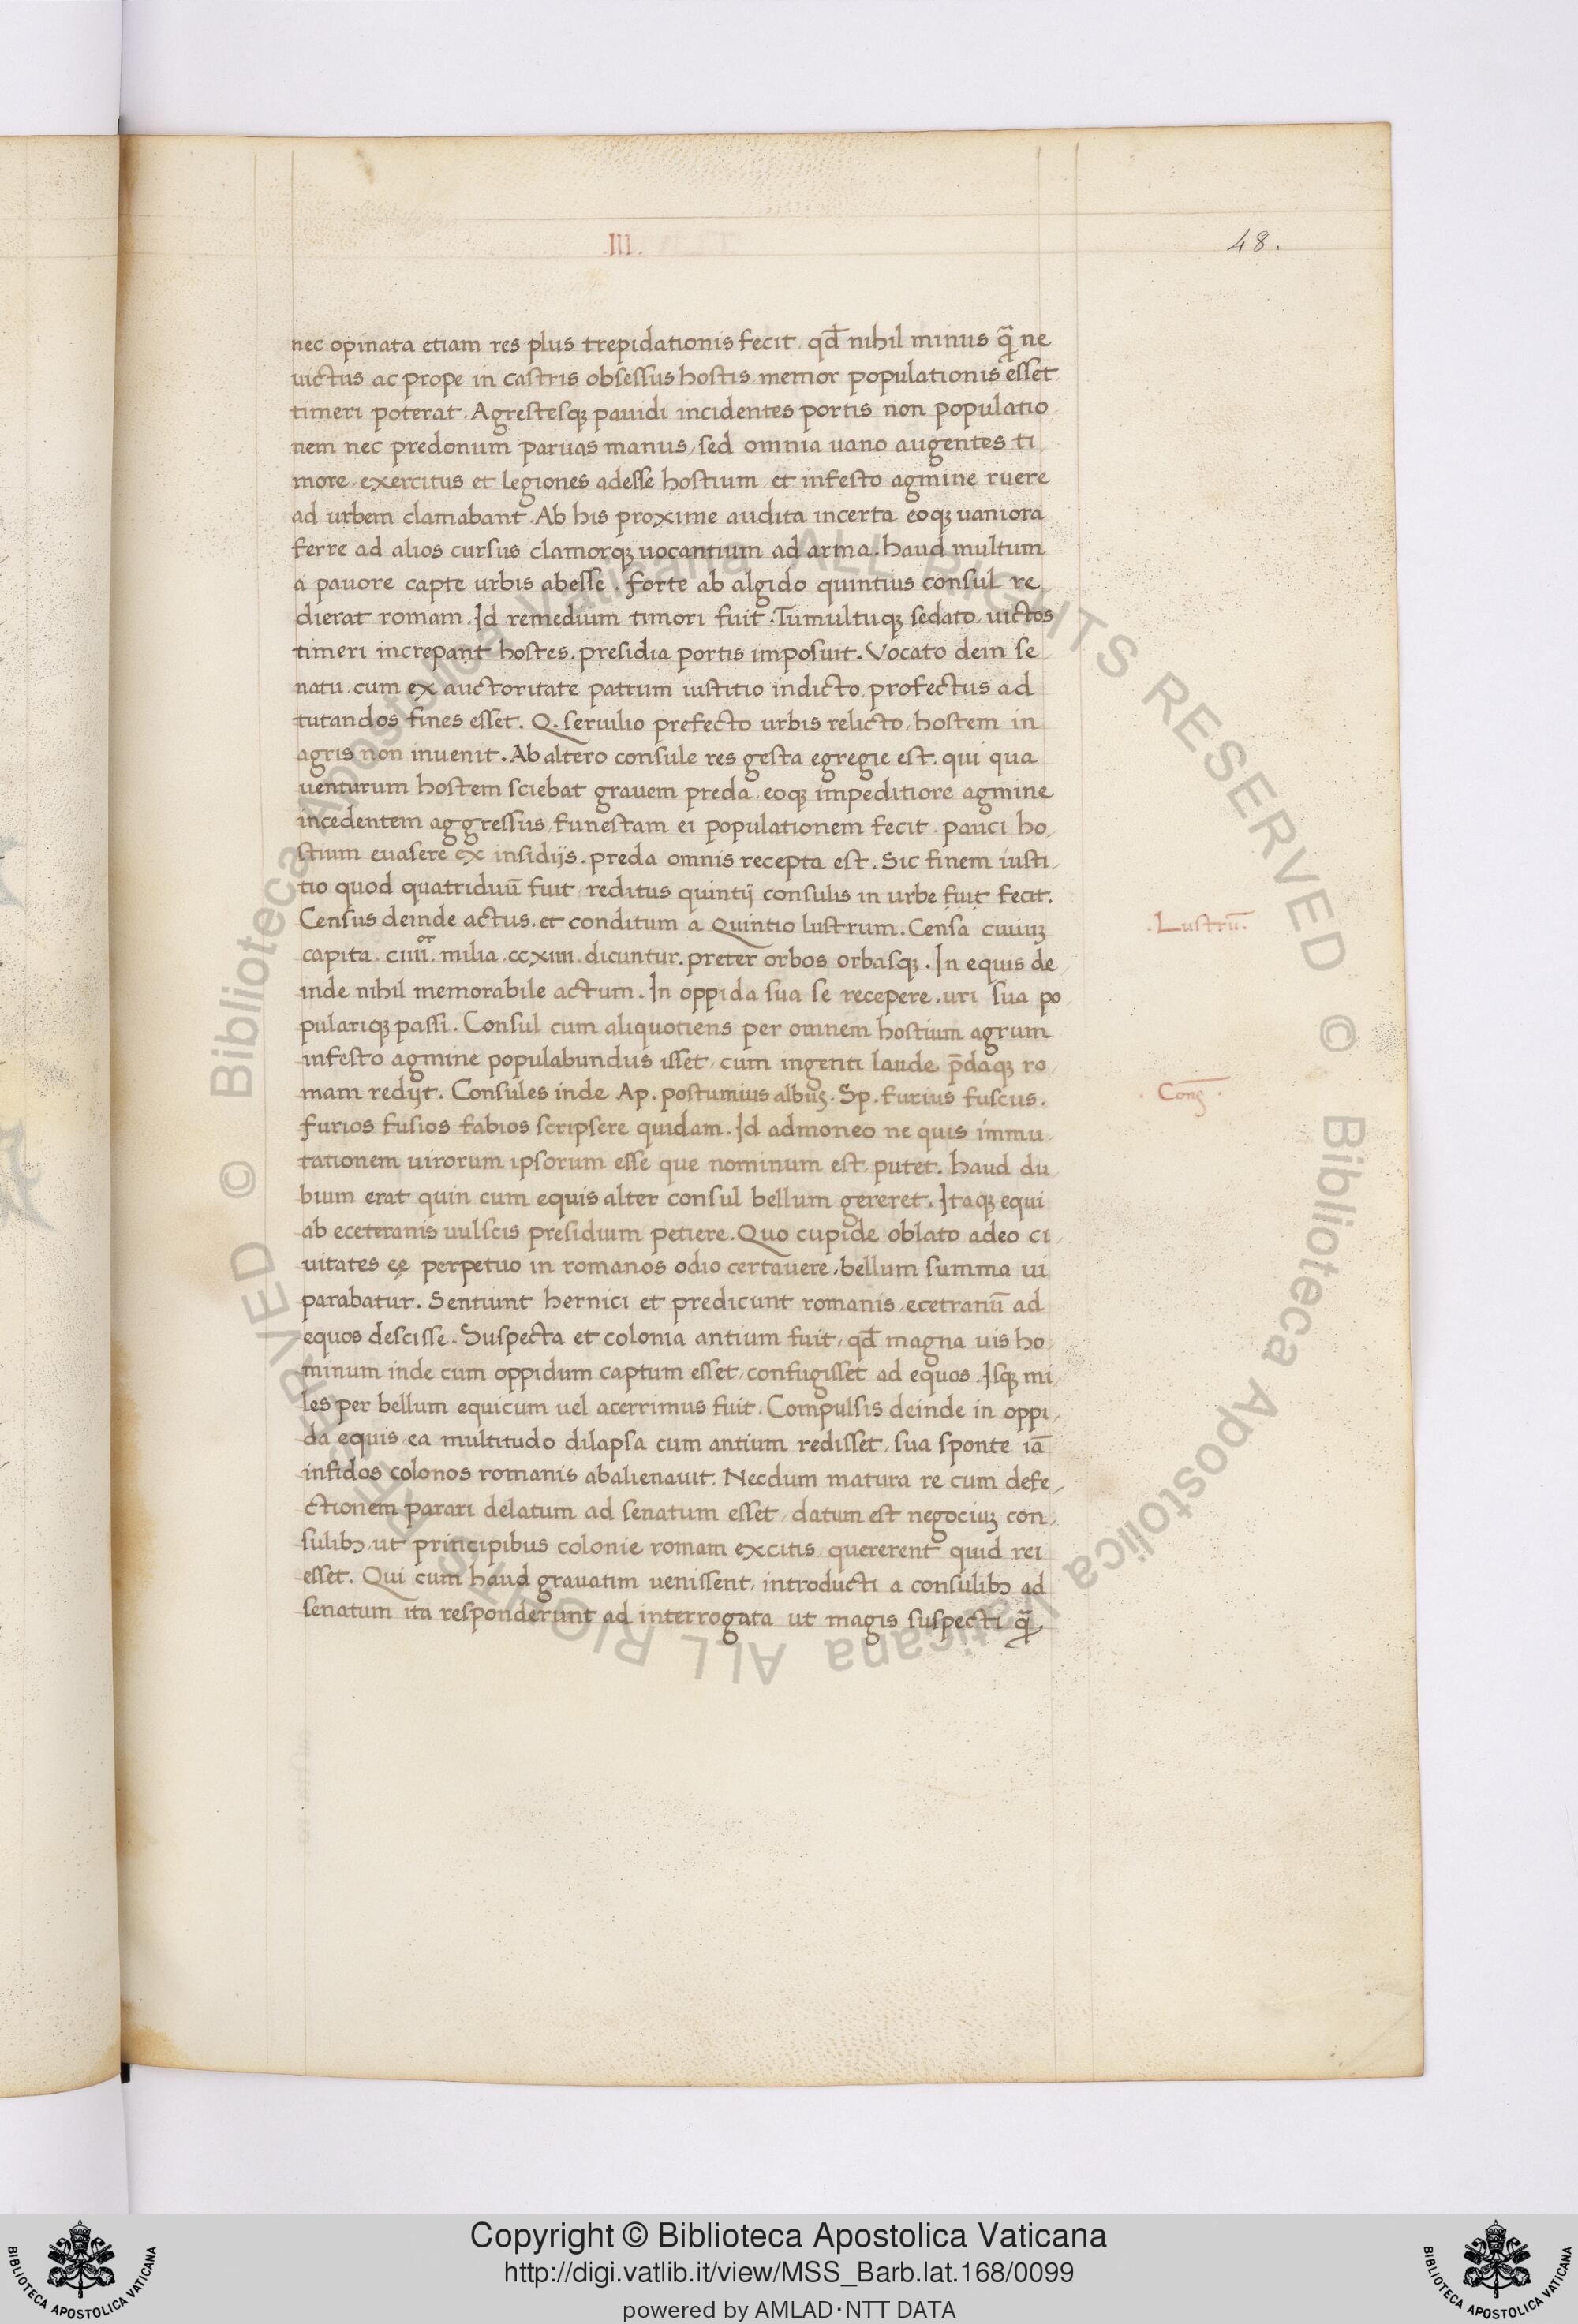 .III.
48.
nec opinata etiam res plus trepidationis fecit. qđ nihil minus q̃ ne
uictus ac prope in castris obsessus hostis memor populationis esset
timeri poterat. Agrestesqꝫ pauidi incidentes portis non populatio
nem nec predonum paruas manus, sed omnia uano augentes ti
more, exercitus et legiones adesse hostium et infesto agmine ruere
ad urbem clamabant. Ab his proxime audita incerta eoqꝫ uaniora
ferre ad alios cursus clamorqꝫ uocantium ad arma. haud multum
a pauore capte urbis abesse. forte ab algido quintius consul re
dierat romam. Id remedium timori fuit. Tumultuqꝫ sedato, uictos
timeri increpant hostes. presidia portis imposuit. Vocato dein se
natu. cum ex auctoritate patrum iustitio indicto. profectus ad
tutandos fines esset. Q. seruilio prefecto urbis relicto, hostem in
agris non inuenit. Ab altero consule res gesta egregie est. qui qua
uenturum hostem sciebat grauem preda, eoqꝫ impeditiore agmine
incedentem aggressus, funestam ei populationem fecit. pauci ho
stium euasere ex insidijs. preda omnis recepta est. Sic finem iusti
tio quod quatriduū fuit, reditus quintij consulis in urbe fuit fecit.
Census deinde actus. et conditum a Quintio lustrum. Censa ciuiuꝫ
.Lustrū.
capita. ciiii.or milia .ccxiiii. dicuntur. preter orbos orbasqꝫ. In equis de
inde nihil memorabile actum. In oppida sua se recepere. uri sua po
pulariqꝫ passi. Consul cum aliquotiens per omnem hostium agrum
infesto agmine populabundus isset, cum ingenti laude p̄daqꝫ ro
mam redijt. Consules inde Ap. postumius albuꝫ. Sp. furius fuscus.
. Conꝫ̄ .
furios fusios fabios scripsere quidam. Id admoneo ne quis immu
tationem uirorum ipsorum esse que nominum est, putet. haud du
bium erat quin cum equis alter consul bellum gereret. Itaqꝫ equi
ab eceteranis uulscis presidium petiere. Quo cupide oblato adeo ci
uitates eę perpetuo in romanos odio certauere, bellum summa ui
parabatur. Sentiunt hernici et predicunt romanis, ecetranū ad
equos descisse. Suspecta et colonia antium fuit, qđ magna uis ho
minum inde cum oppidum captum esset, confugisset ad equos. Isqꝫ mi
les per bellum equicum uel acerrimus fuit. Compulsis deinde in oppi
da equis, ea multitudo dilapsa cum antium redisset, sua sponte iā
infidos colonos romanis abalienauit. Necdum matura re cum defe
ctionem parari delatum ad senatum esset, datum est negociuꝫ con
sulibꝫ, ut principibus colonie romam excitis, quererent quid rei
esset. Qui cum haud grauatim uenissent, introducti a consulibꝫ ad
senatum ita responderunt ad interrogata ut magis suspecti q̃
© Biblioteca Apostolica Vaticana ALL RIGHTS RESERVED © Biblioteca Apostolica Vaticana ALL RIGHTS RESERVED
BIBLIOTECA APOSTOLICA VATICANA
Copyright © Biblioteca Apostolica Vaticana
http://digi.vatlib.it/view/MSS_Barb.lat.168/0099
powered by AMLAD·NTT DATA
BIBLIOTECA APOSTOLICA VATICANA